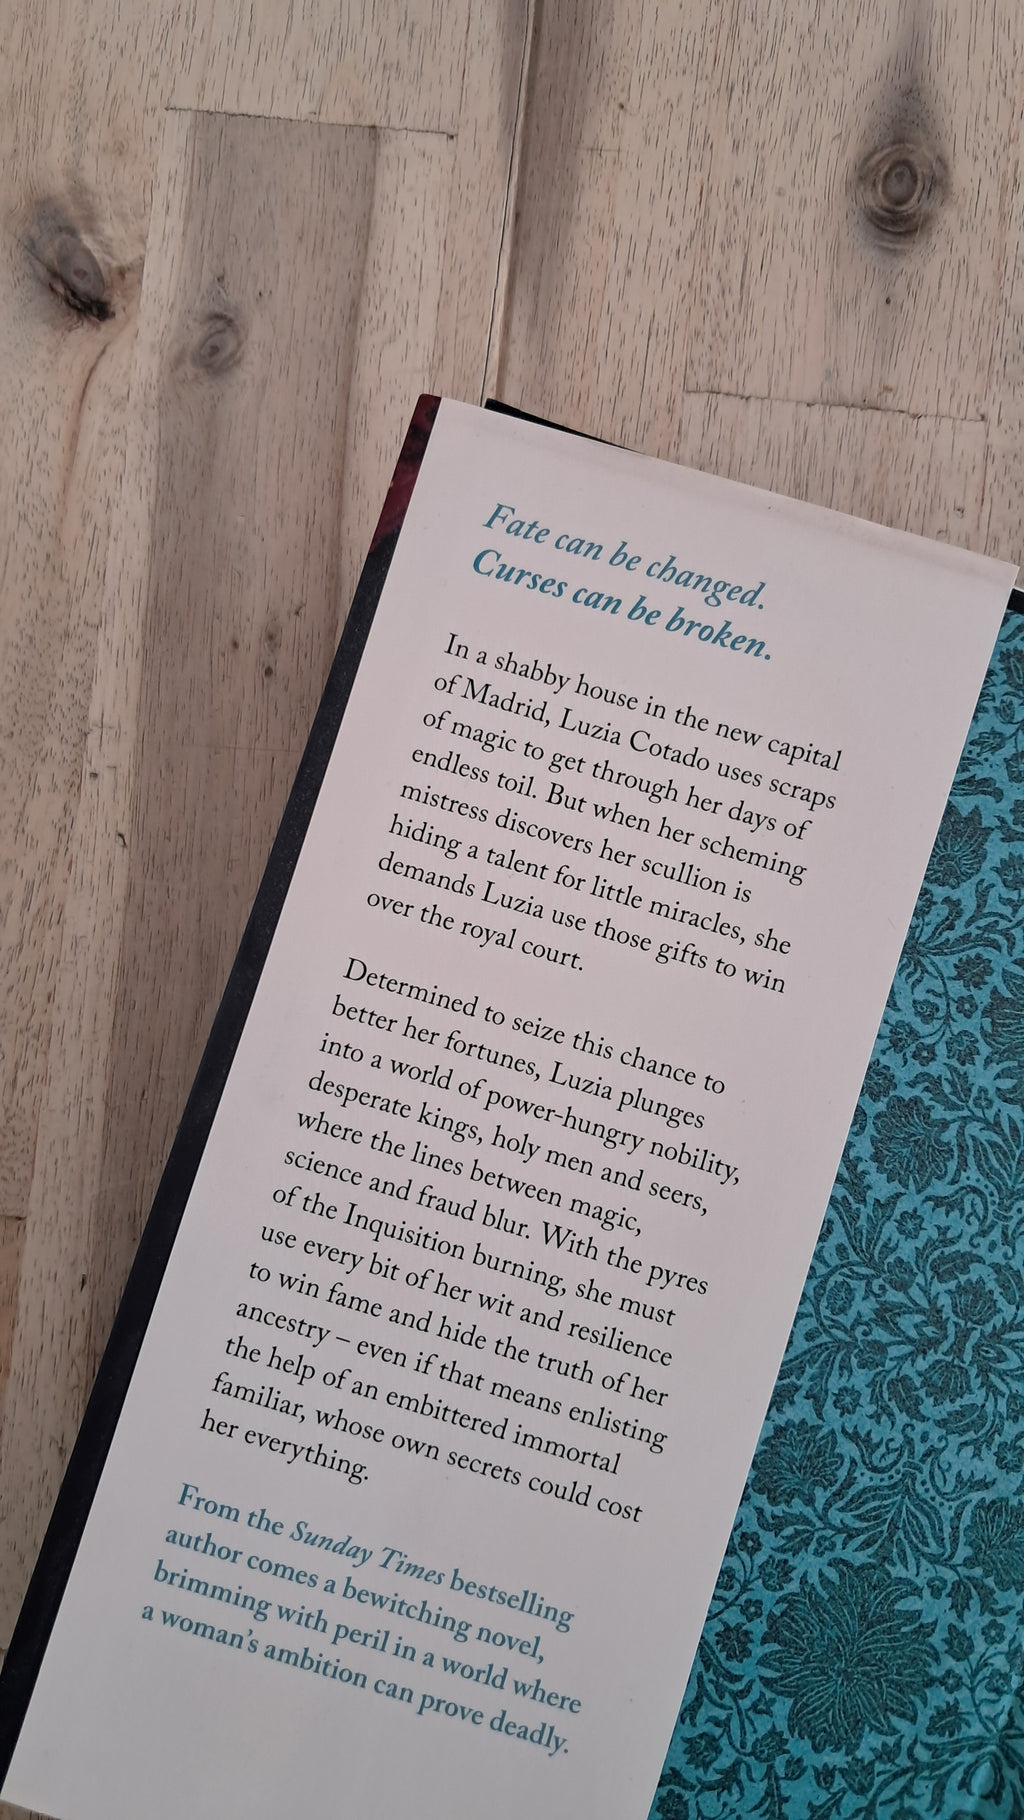 Fate can be changed.
Curses can be broken.
In a shabby house in the new capital
of Madrid, Luzia Cotado uses scraps
of magic to get through her days of
endless toil. But when her scheming
mistress discovers her scullion is
hiding a talent for little miracles, she
demands Luzia use those gifts to win
over the royal court.
Determined to seize this chance to
better her fortunes, Luzia plunges
into a world of power-hungry nobility,
desperate kings, holy men and seers,
where the lines between magic,
science and fraud blur. With the pyres
of the Inquisition burning, she must
use every bit of her wit and resilience
to win fame and hide the truth of her
ancestry – even if that means enlisting
the help of an embittered immortal
familiar, whose own secrets could cost
her everything.
From the Sunday Times bestselling
author comes a bewitching novel,
brimming with peril in a world where
a woman's ambition can prove deadly.